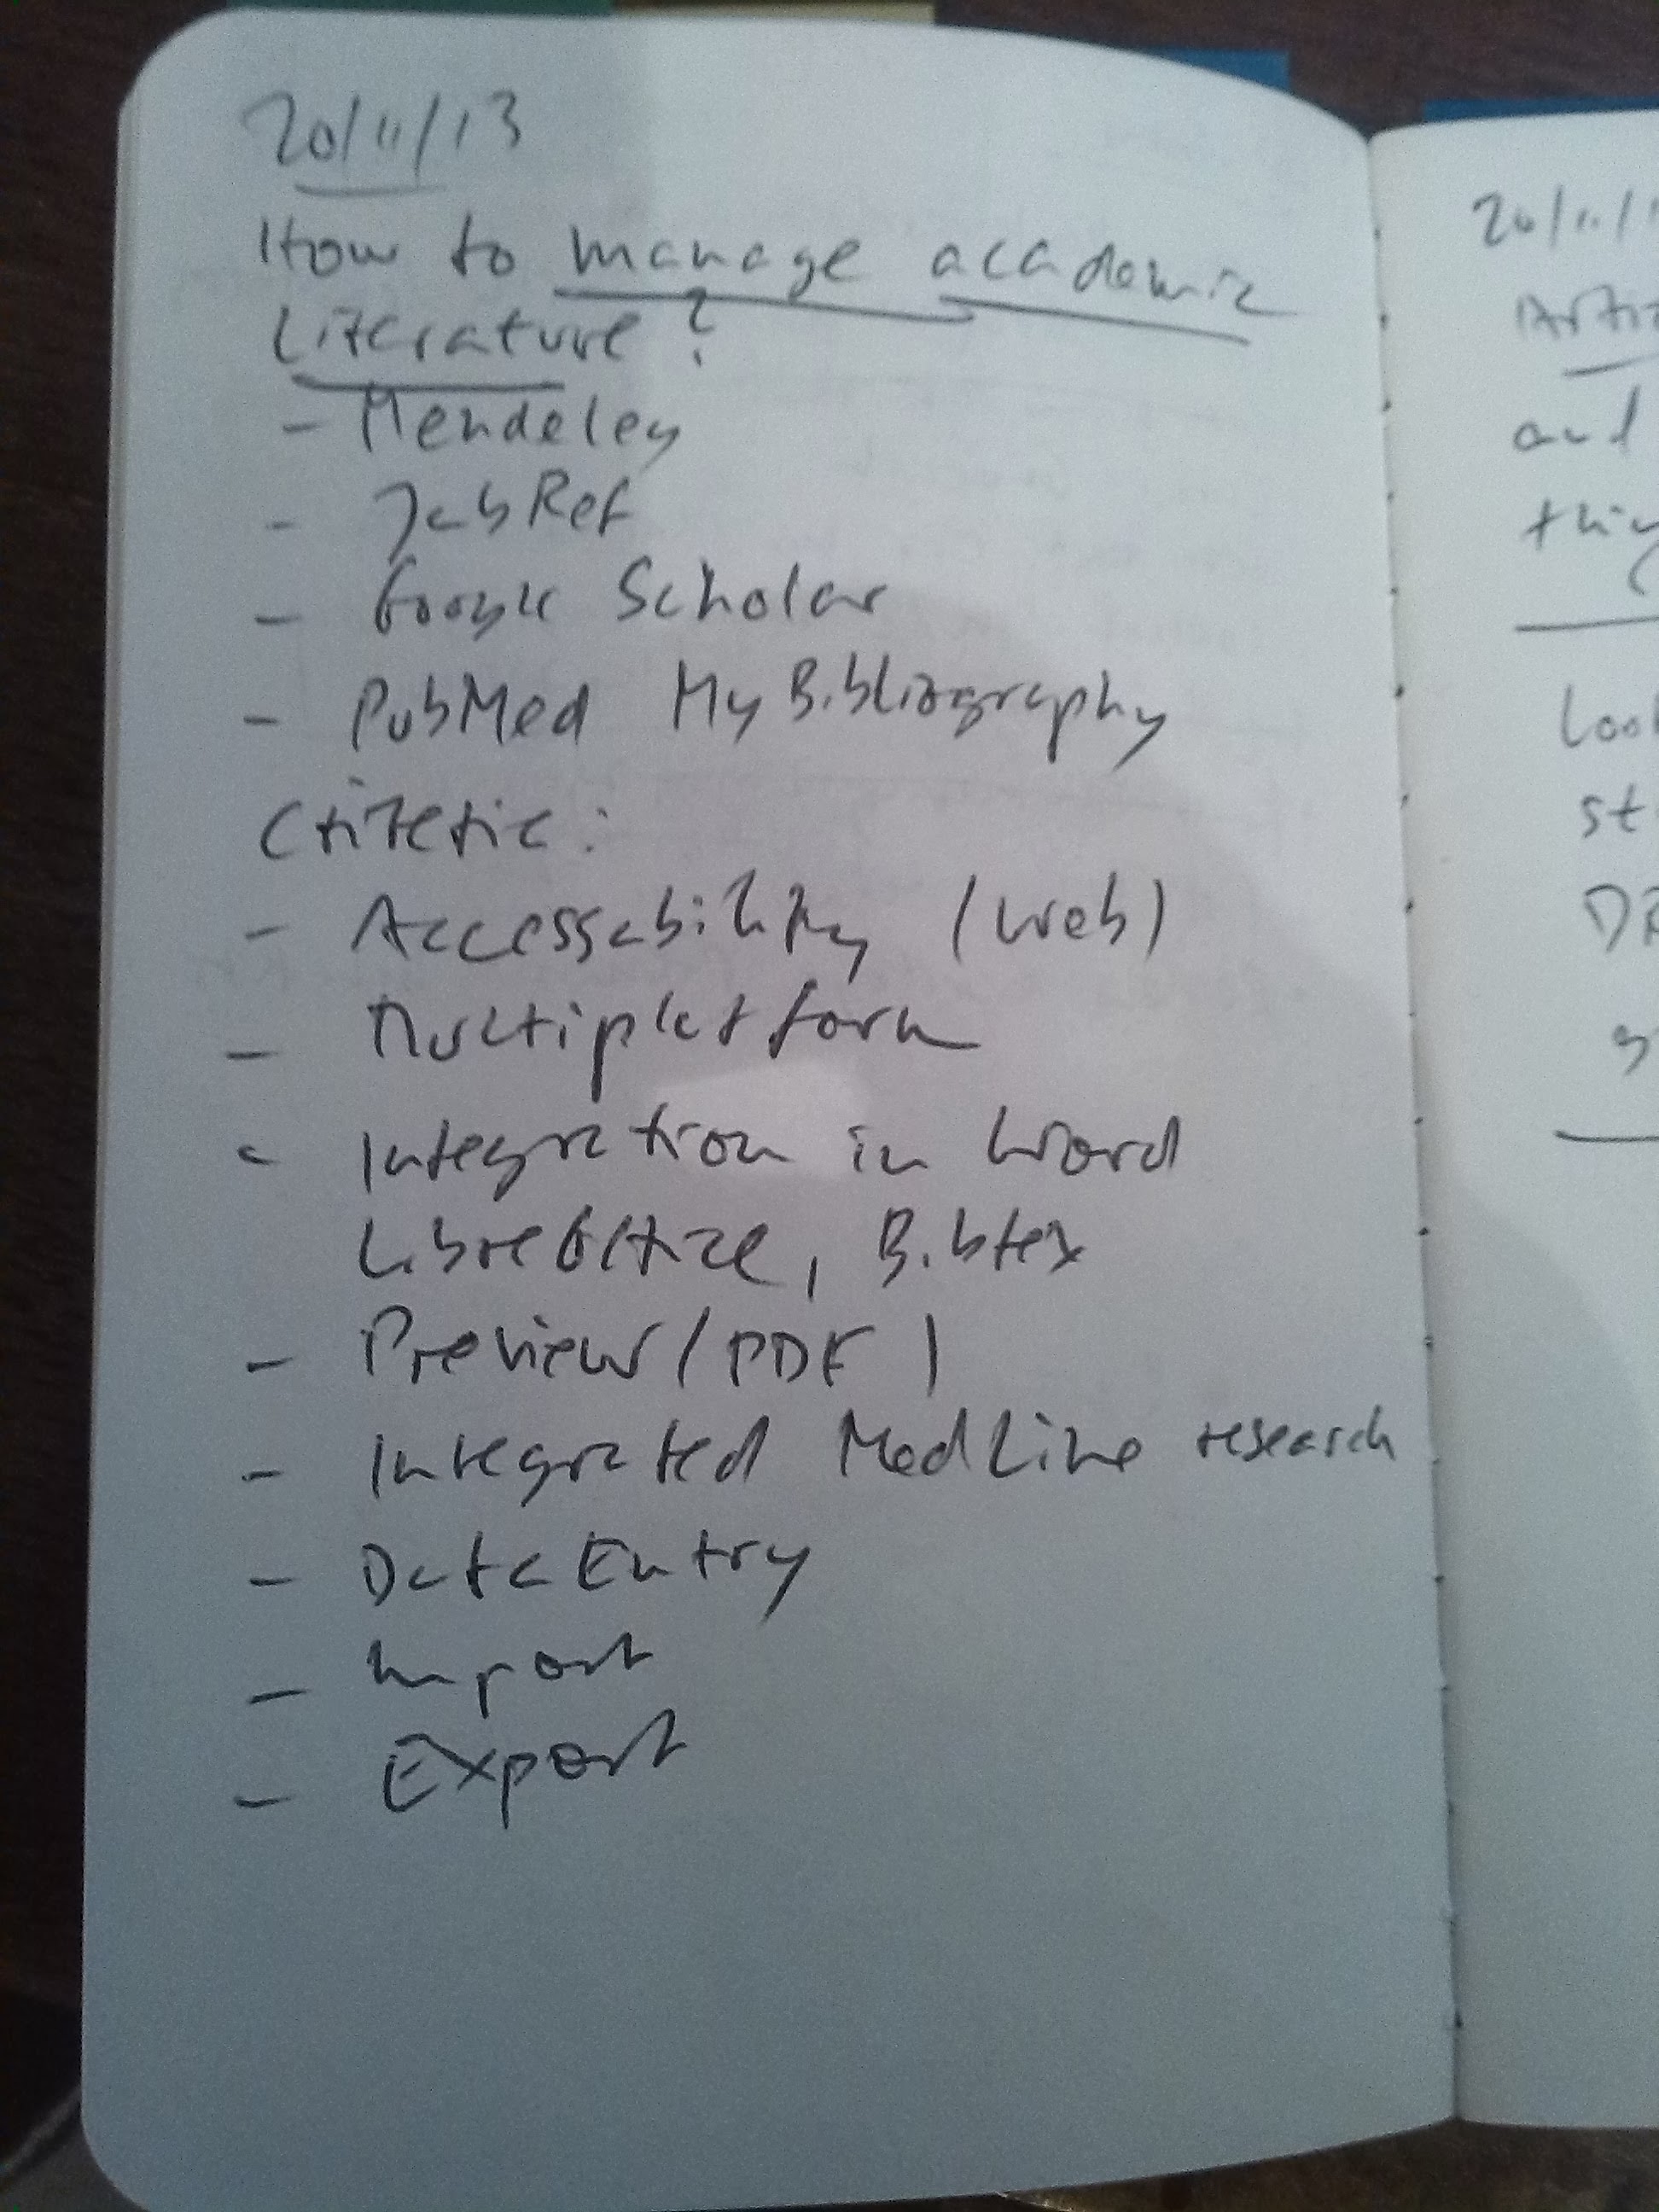 20/11/13
How to manage academic
Literature?
- Mendeley
- JabRef
- Google Scholar
- PubMed My Bibliography
Criteria:
- Accessability (Web)
- Multiplatform
- Integration in Word
LibreOffice, Bibtex
- Preview (PDF)
- Integrated MedLine research
- Data Entry
- Import
- Export
20/11/1
Artic
and
thin
Loo
st
DR